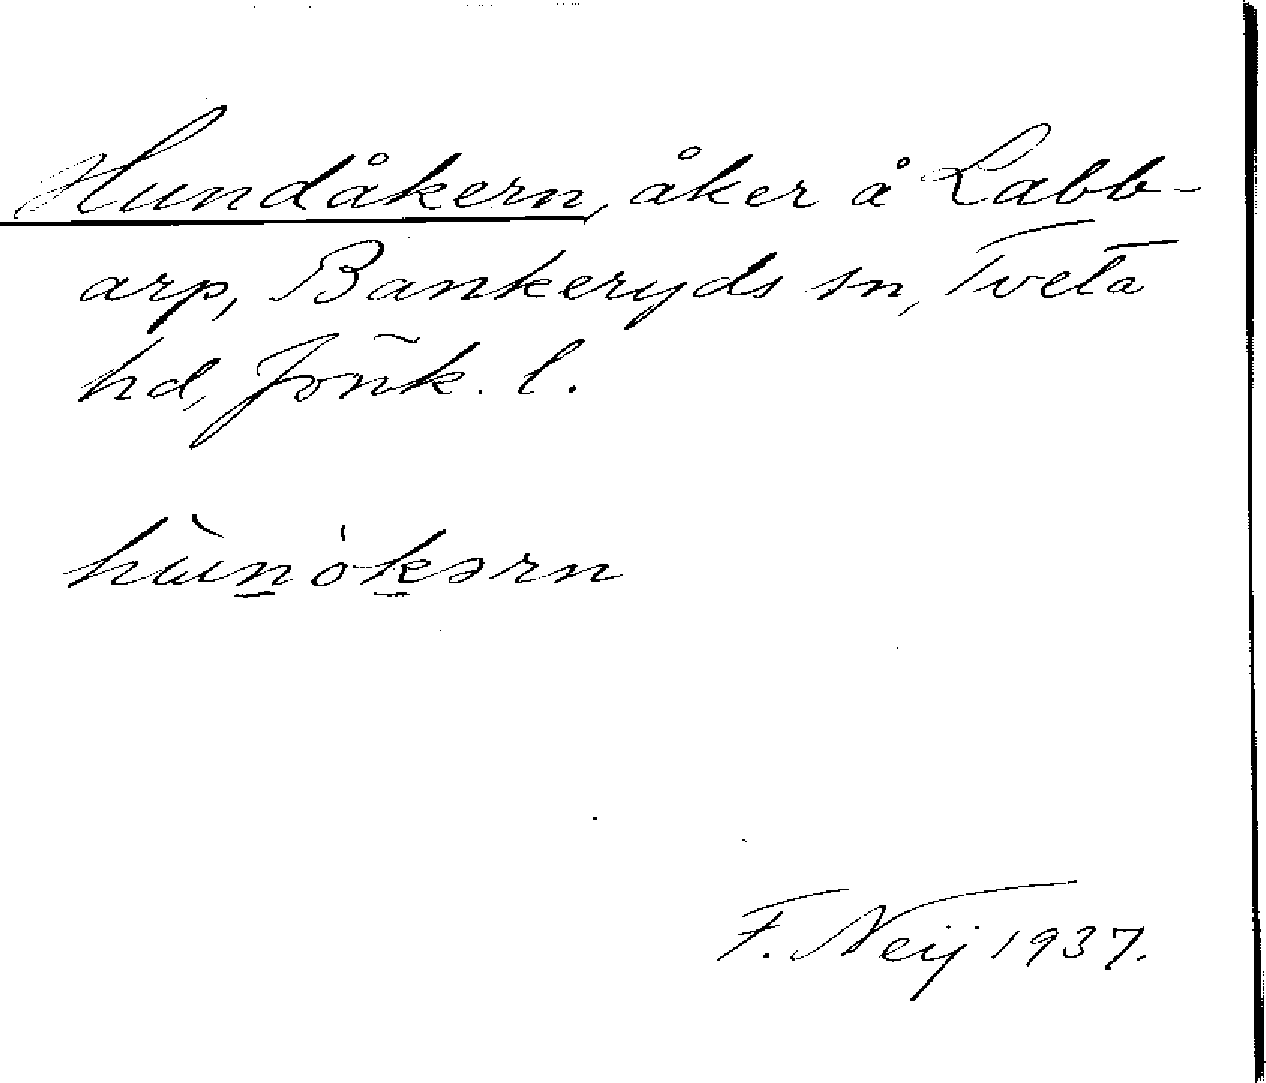 Hundåkern, åker å Labb-
arp, Bankeryds sn, Tveta
hd, Jönk. l.
hùn̠ók̠ərn
F. Neij 1937.